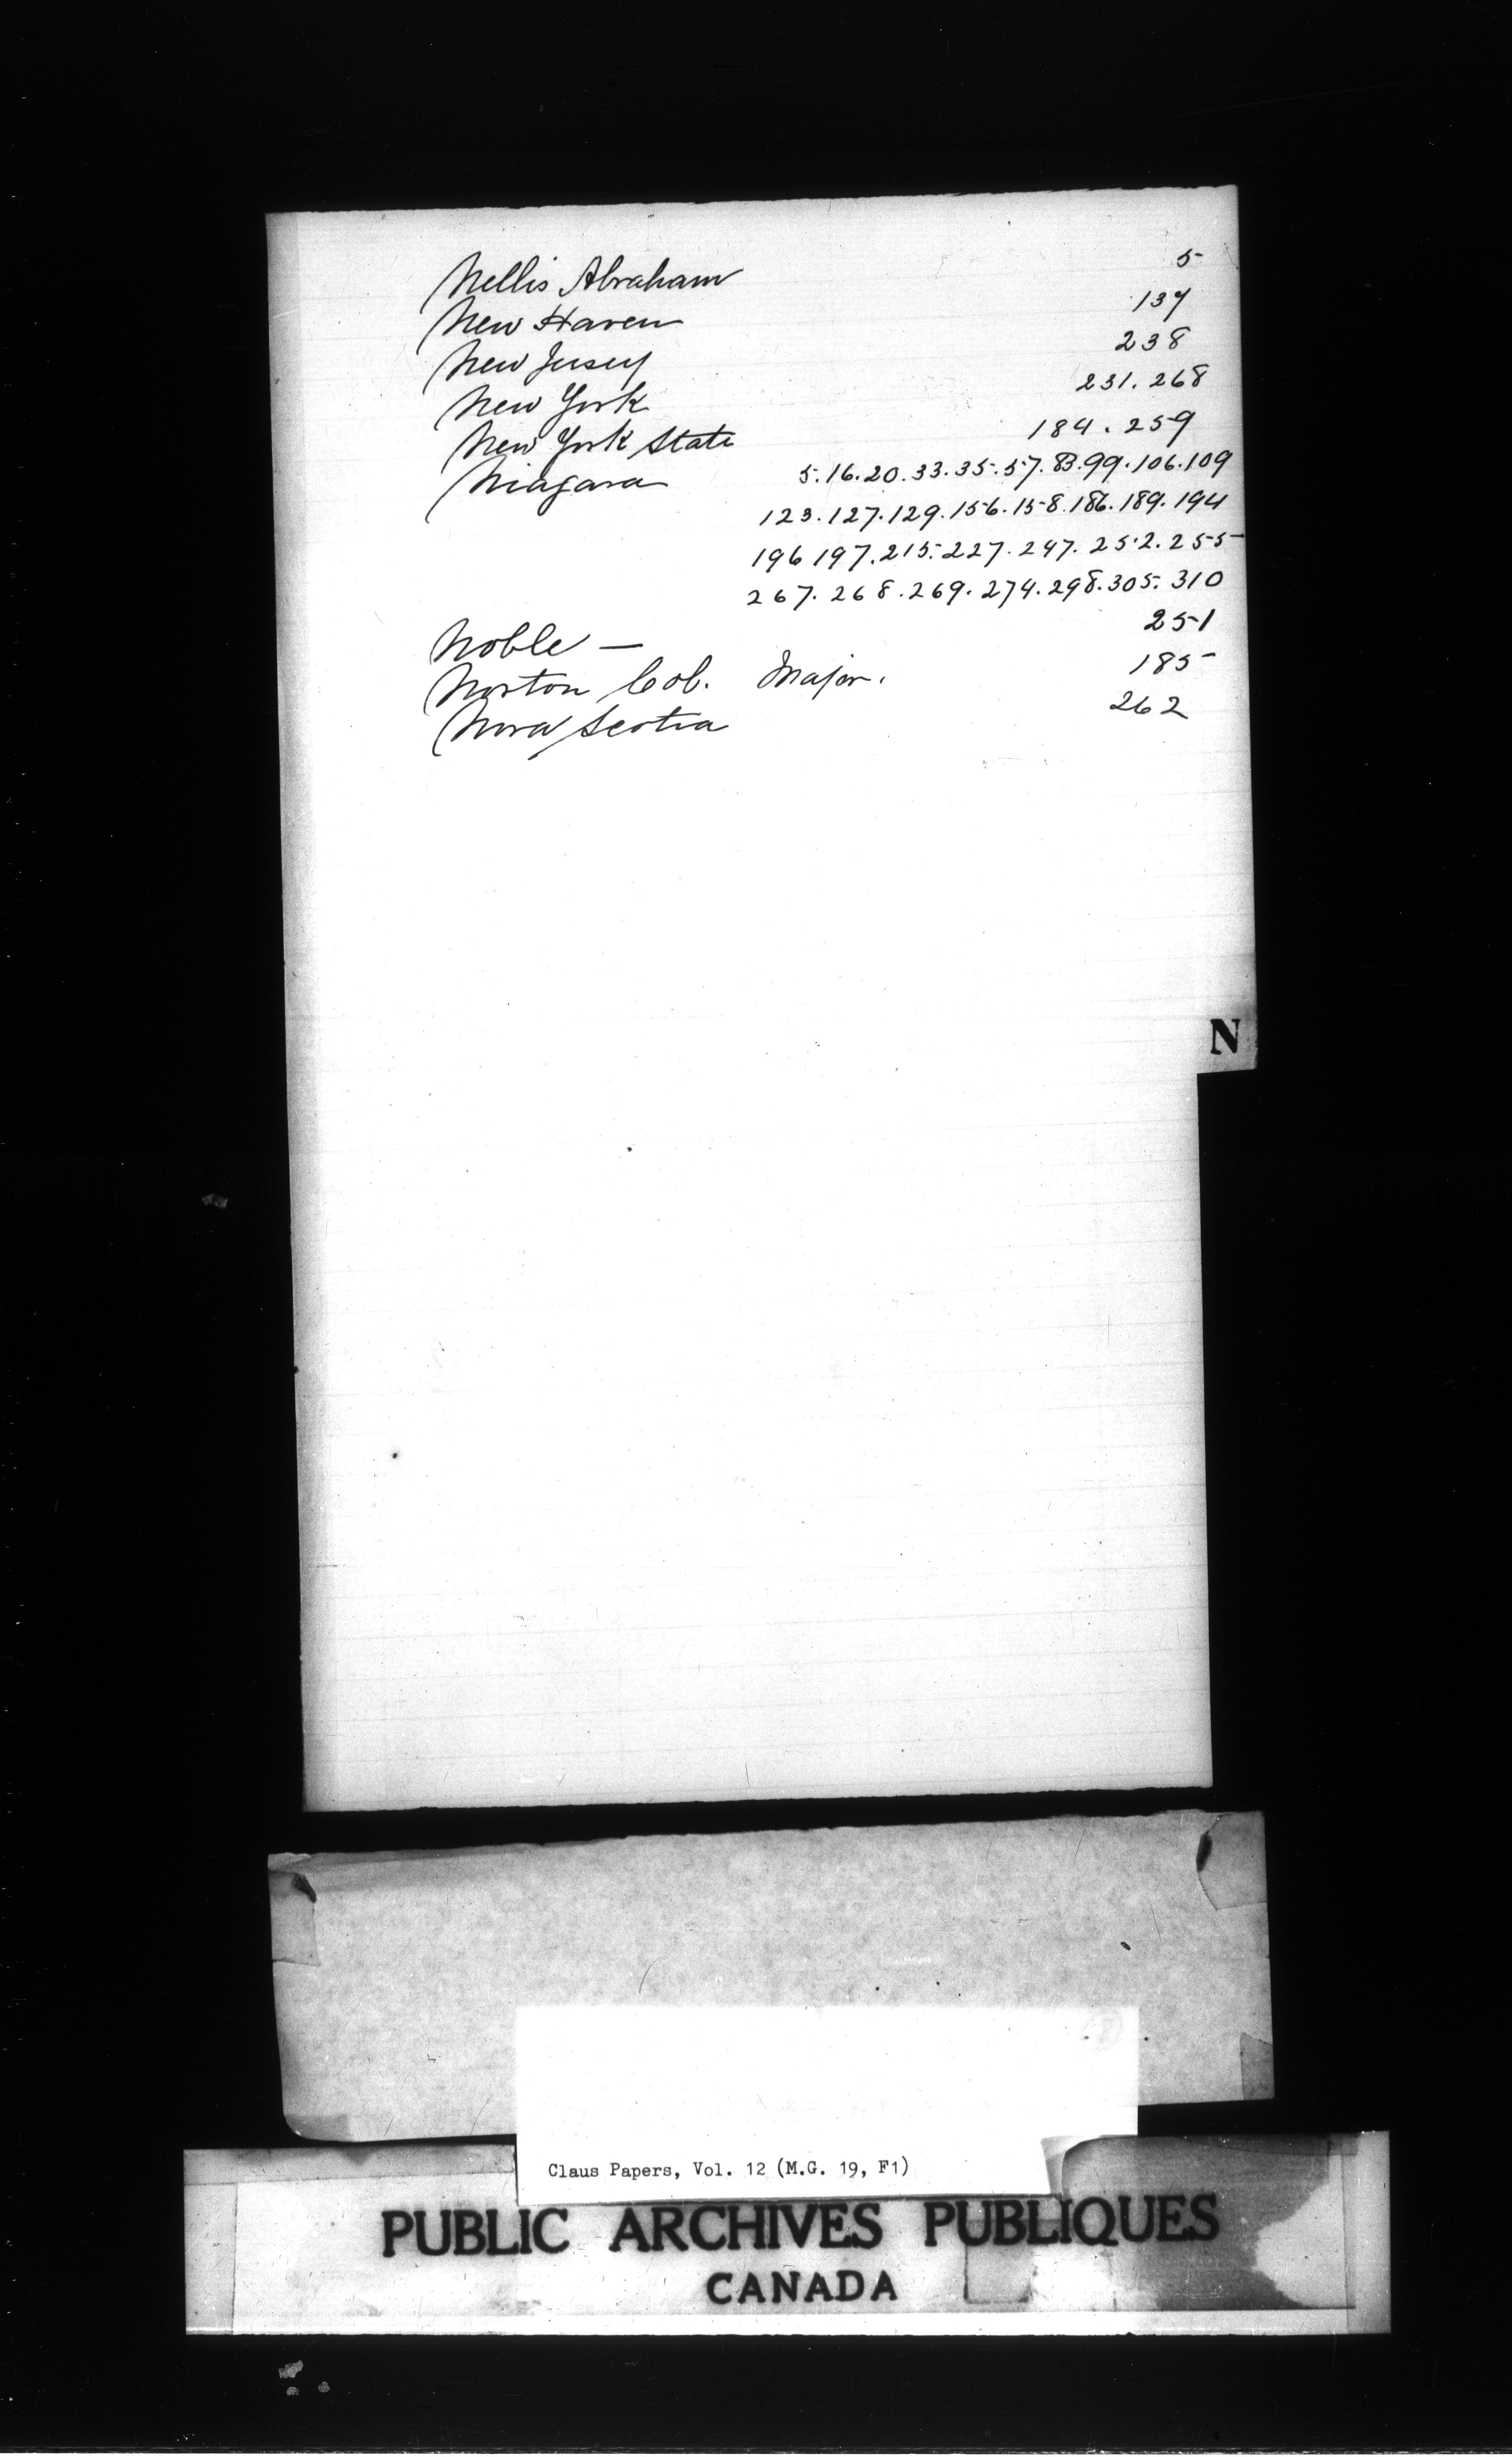 Nellis Abraham 5
New Haven 137
New Jersey 238
New York 231. 268
New York State 184. 259
Niagara 5. 16. 20. 33. 35. 57. 83. 99. 106. 109
123. 127. 129. 156. 158. 186. 189. 194
196 197. 215. 227. 247. 252. 255
267. 268. 269. 274. 298. 305. 310
Noble — 251
Norton Col. Major. 185
Nova Scotia 262
N
Claus Papers, Vol. 12 (M.G. 19, F1)
PUBLIC ARCHIVES PUBLIQUES
CANADA